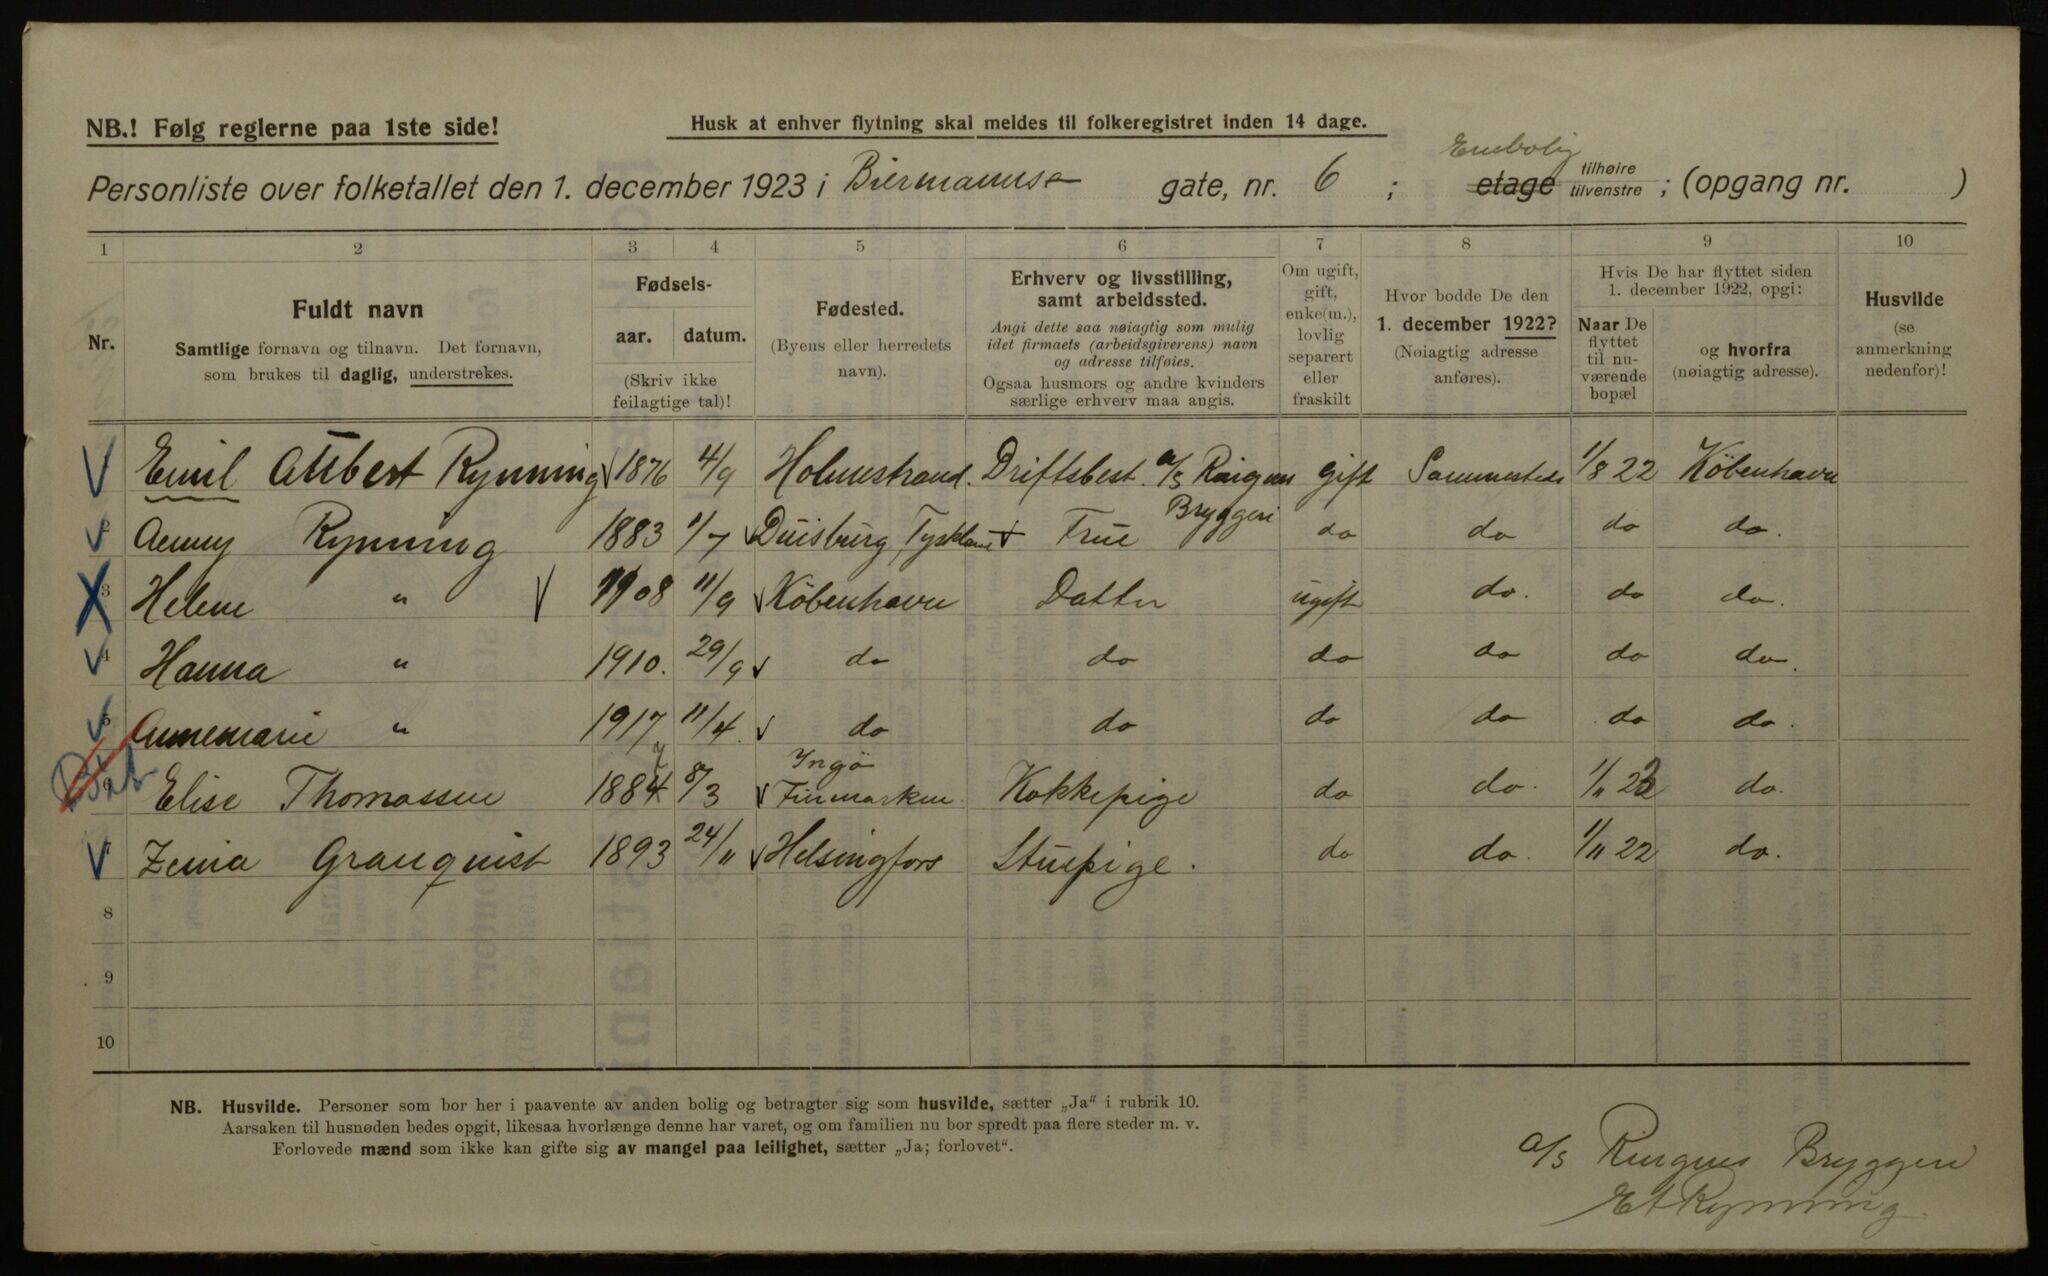 NB.! Følg reglerne paa 1ste side!
Husk at enhver flytning skal meldes til folkeregistret inden 14 dage.
Personliste over folketallet den 1. december 1923 i Biermanns gate, nr. 6 ; Enebolig etage tilhøire tilvenstre ; (opgang nr. )
1 2 3 4 5 6 7 8 9 10
Nr.
Fuldt navn
Samtlige fornavn og tilnavn. Det fornavn,
som brukes til daglig, understrekes.
Fødsels-
aar. datum.
(Skriv ikke
feilagtige tal)!
Fødested.
(Byens eller herredets
navn).
Erhverv og livsstilling,
samt arbeidssted.
Angi dette saa nøiagtig som mulig
idet firmaets (arbeidsgiverens) navn
og adresse tilføies.
Ogsaa husmors og andre kvinders
særlige erhverv maa angis.
Om ugift,
gift,
enke(m.),
lovlig
separert
eller
fraskilt
Hvor bodde De den
1. december 1922?
(Nøiagtig adresse
anføres).
Hvis De har flyttet siden
1. december 1922, opgi:
Naar De
flyttet
til nu-
værende
bopæl
og hvorfra
(nøiagtig adresse).
Husvilde
(se
anmerkning
nedenfor)!
Emil Albert Rynning 1876 4/9 Holmestrand. Driftsbest. A/S Ringnes Bryggeri gift Sammesteds 1/8 22 København
2 Aenny Rynning 1883 1/7 Duisburg, Tyskland Frue do do do do.
3 Helene " 1908 11/9 København Datter ugift do. do do.
4 Hanna " 1910. 29/9 do do do do do do.
5 Annemarie " 1917 11/4 do do do do do do.
6 Elise Thomassen 1884 7 8/3 Ingö Finmarken Kokkepige do do. 1/11 23 do.
7 Zenia Granquist 1893 24/11 Helsingfors Stuepige. do do. 1/11 22 do.
8
9
10
NB. Husvilde. Personer som bor her i paavente av anden bolig og betragter sig som husvilde, sætter „Ja" i rubrik 10.
Aarsaken til husnøden bedes opgit, likesaa hvorlænge denne har varet, og om familien nu bor spredt paa flere steder m. v.
Forlovede mænd som ikke kan gifte sig av mangel paa leilighet, sætter „Ja; forlovet".
A/S Ringnes Bryggeri
E A Rynning